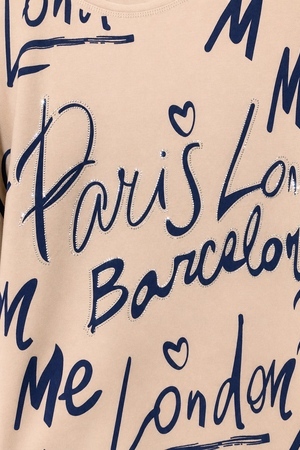 M
Paris Lo
Barcelon
Me London